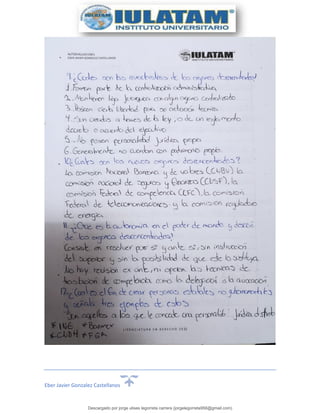 IULATAM
INSTITUTO UNIVERSITARIO
AUTOEVALUACION 5
EBER JAVIER GONZALEZ CASTELLANOS
IULATAM
9.¿Cuales son las caracteristicas de los organos desconcentrados?
1. Forman parte de la centralización administrativa,
2. Mantienen liga jerarquica con algun organo centralizado
3. Poseen cierta libertad para su actuación tecnica
4. Son creados a traves de la ley, o de un reglamento
decreto o acuerdo del ejecutivo
5. No poseen personalidad juridica propia
6. Generalmente no cuentan con patrimonio propio.
10.¿Cuales son los nuevos organos desconcentrados?
La comisión Nacional Bancaria y de valores (CNBV); la
comision nacional de seguros y finanzas (CNSF); la
comisión Federal de competencia (CFC); la comisión
Federal de telecomunicaciones y la comision reguladora
de energia.
11.¿Que es la autonomia en el poder de mando y decisi
de los organos desconcentrados?
Consiste en resolver por si y ante si, sin instrucción
del superior y sin la posibilidad de que este lo sustituya.
No hay revision ex ante, ni operan las tecnicas de
traslación de competencia como la delegación o la avocación
12.¿Cual es el fin de crear personas estatales no gubernamentales
y señala tres ejemplos de estos
Son aquellos a los que le concede una personalidad juridica distinta
* INE * Banxer
* CNDH * FGR
LICENCIATURA EN DERECHO 2022
Eber Javier Gonzalez Castellanos
Descargado por jorge ulises lagomeis carrera (jorgelagomeis956@gmail.com)